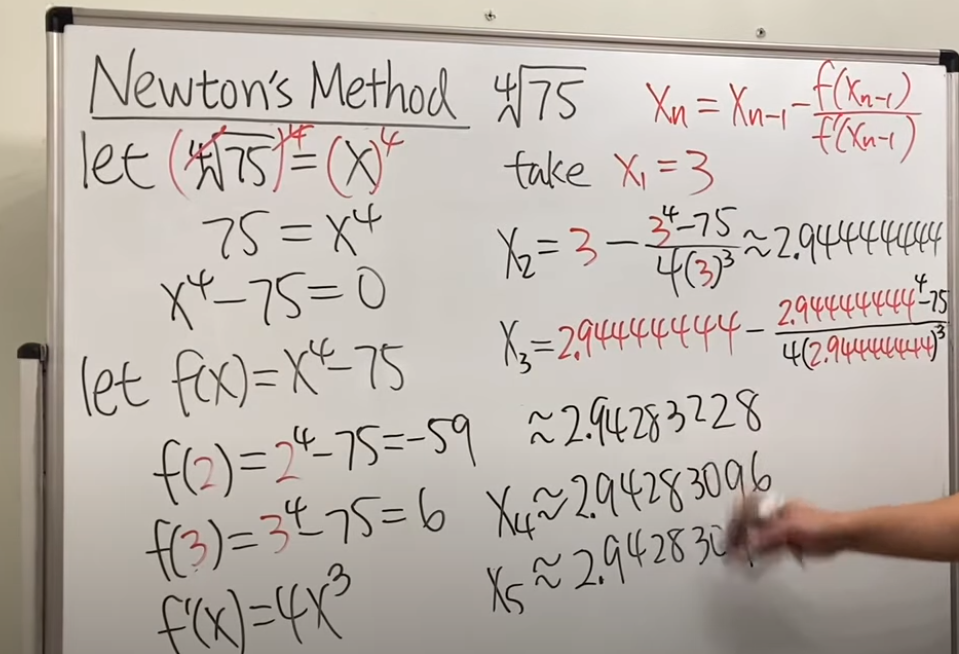 Newton's Method ∜75
let (∜75)⁴ = (x)⁴
75 = x⁴
x⁴ − 75 = 0
let f(x) = x⁴ − 75
f(2) = 2⁴ − 75 = −59
f(3) = 3⁴ − 75 = 6
f'(x) = 4x³
xₙ = xₙ₋₁ − f(xₙ₋₁)/f'(xₙ₋₁)
take x₁ = 3
x₂ = 3 − (3⁴ − 75)/(4(3)³) ≈ 2.94444444
x₃ = 2.94444444 − (2.94444444⁴ − 75)/(4(2.94444444)³)
≈ 2.94283228
x₄ ≈ 2.94283096
x₅ ≈ 2.94283